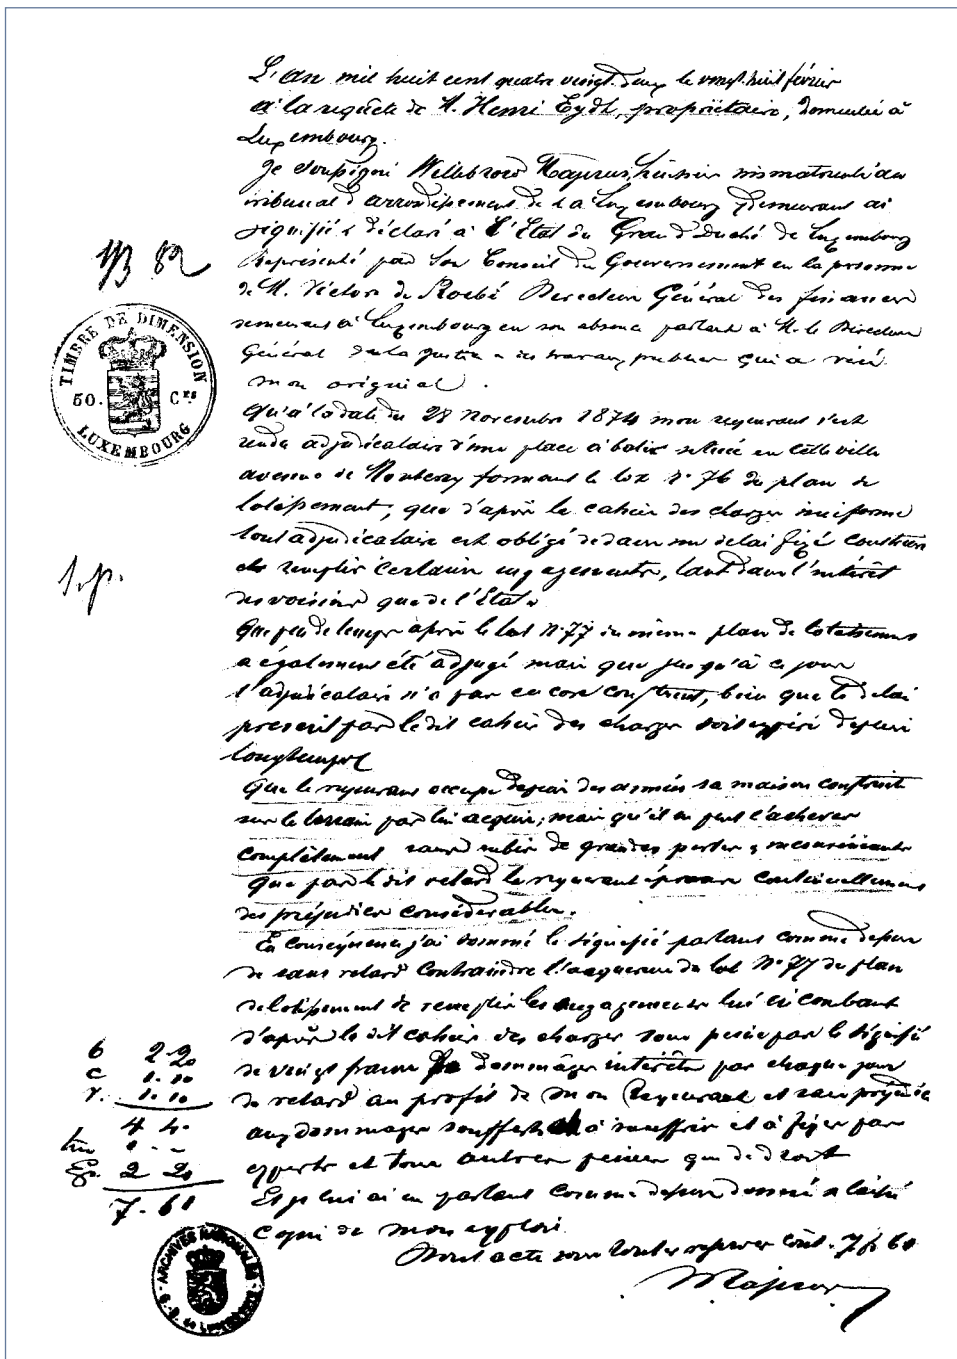 L'an mil huit cent quatre vingt deux le vingt huit février
à la requête de M. Henri Eydt, propriétaire, domicilié à
Luxembourg.
Je soussigné Willibrord huissier immatriculé au
tribunal d'arrondissement de Luxembourg y demeurant ai
signifié & déclaré à l'État du Grand Duché de Luxembourg
Représenté par son Conseil du Gouvernement en la personne
de M. Victor de Roebé Directeur Général des finances
demeurant à Luxembourg en son absence parlant à M. le Directeur
Général de la justice & des travaux publics qui a visé
mon original.
1/3 82
TIMBRE DE DIMENSION
50. Ces
LUXEMBOURG
Qu'à la date du 28 novembre 1874 mon requérant s'est
rendu adjudicataire d'une place à bâtir située en cette ville
avenue de Monterey formant le lot No 76 du plan de
lotissement, que d'après le cahier des charges uniforme
tout adjudicataire est obligé de dans un délai fixé construire
et remplir certains engagements, tant dans l'intérêt
des voisins que de l'État.
Que peu de temps après le lot No 77 du même plan de lotissement
a également été adjugé mais que jusqu'à ce jour
l'adjudicataire n'a pas encore construit, bien que le délai
prescrit par le dit cahier des charges soit expiré depuis
longtemps
Que le requérant occupe depuis des années sa maison construite
sur le terrain par lui acquis, mais qu'il ne peut l'achever
complètement sans subir de grandes pertes & inconvénients
Que par le dit retard le requérant éprouve continuellement
des préjudices considérables.
En conséquence j'ai sommé le signifié parlant comme dessus
de sans retard contraindre l'acquéreur du lot No 77 du plan
de lotissement de remplir les engagements lui incombant
d'après le dit cahier des charges sous peine par le signifié
de vingt francs de dommages intérêts par chaque jour
de retard au profit de mon Requérant et sans préjudice
aux dommages soufferts & à souffrir et à fixer par
experts et tous autres peines que de droit
Et je lui ai en parlant comme dessus donné & laissé
copie de mon exploit.
Dont acte sous toutes réserves Coût. 7 f 60
6 2.20
c 1.10
v. 1.10
4 40
2 20
7.60
ARCHIVES NATIONALES
G. D. de LUXEMBOURG